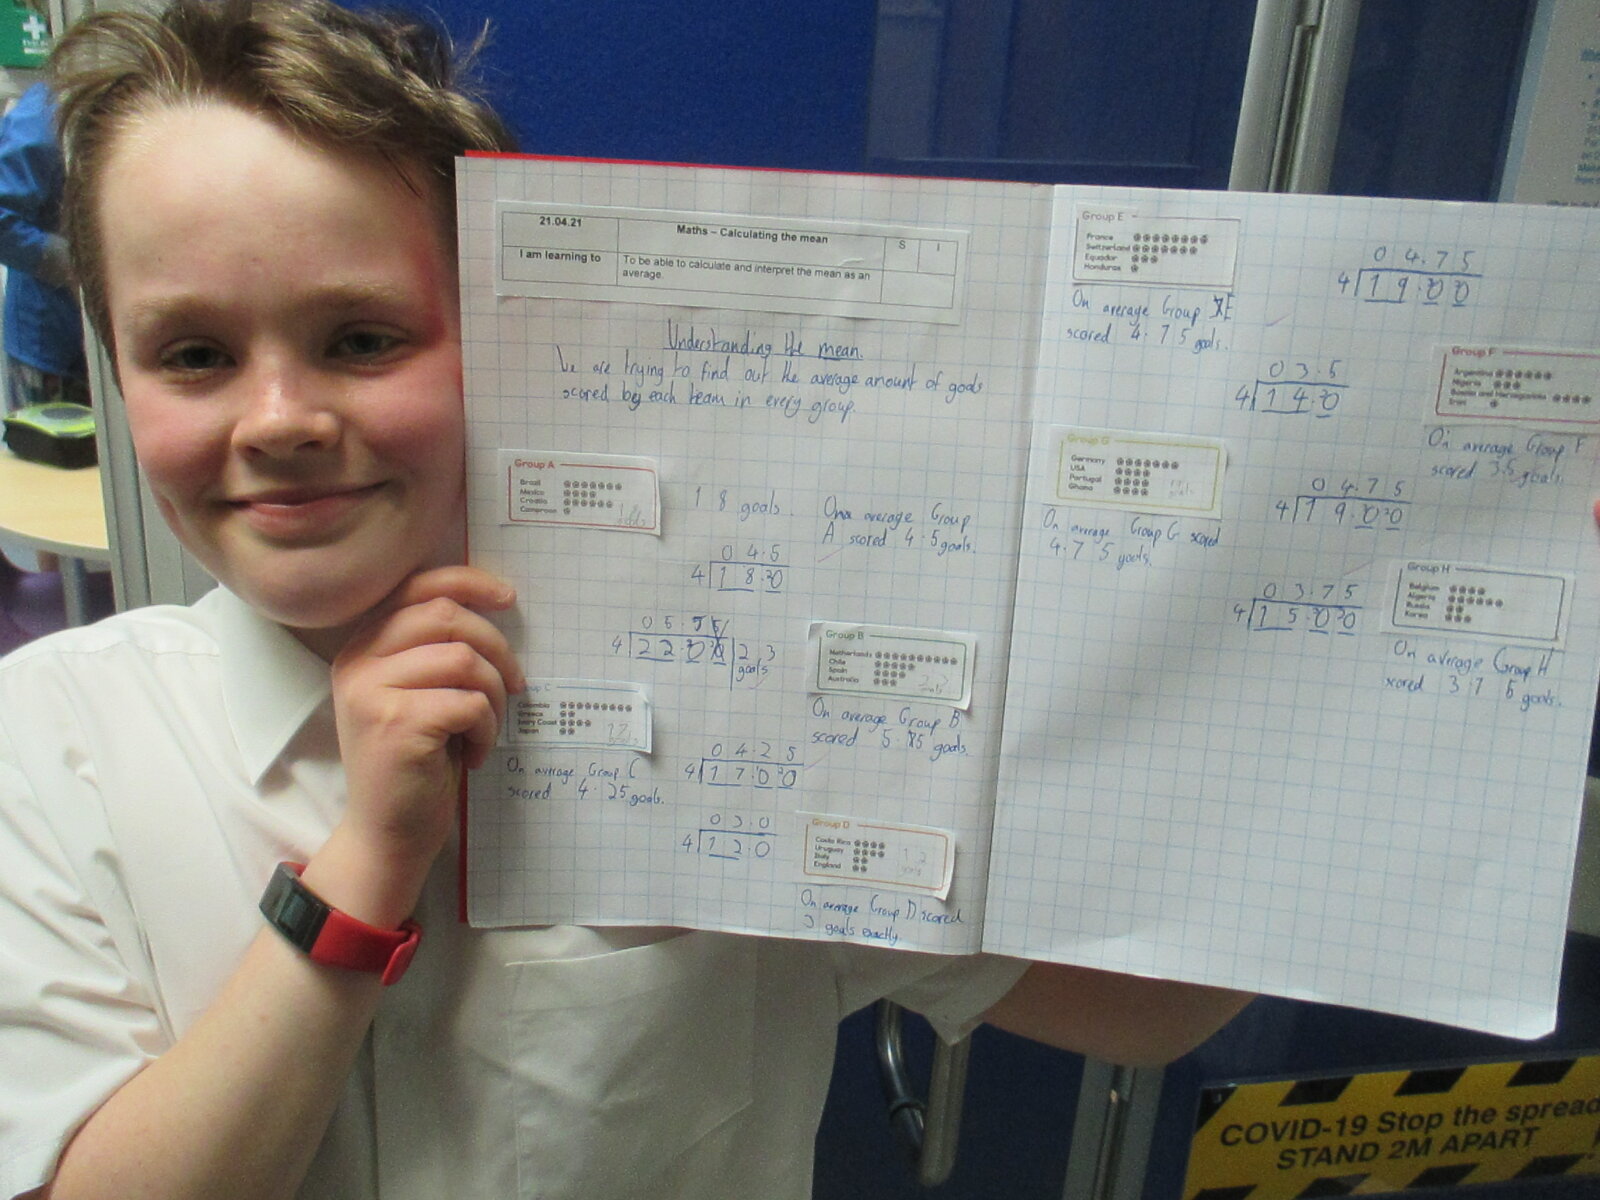 21.04.21
Maths – Calculating the mean
S
I
I am learning to
To be able to calculate and interpret the mean as an
average.
Understanding the mean.
We are trying to find out the average amount of goals
scored by each team in every group.
Group A
Brazil
Mexico
Croatia
Cameroon
18 goals.
On average Group
A scored 4.5 goals.
04.5
4 18.0
05.
4 22.
23
goals
Group B
Netherlands
Chile
Spain
Australia
On average Group B
scored 5. goals.
C
Colombia
Greece
Ivory Coast
Japan
On average Group C
scored 4.25 goals.
04.25
4 17.00
03.0
4 12.0
Group D
Costa Rica
Uruguay
Italy
England
12
goals
On average Group D scored
3 goals exactly.
Group E
France
Switzerland
Equador
Honduras
04.75
4 19.00
On average Group E
scored 4.75 goals.
03.5
4 14.0
Group F
Argentina
Nigeria
Bosnia and Herzegovina
Iran
On average Group F
scored 3.5 goals.
Group G
Germany
USA
Portugal
Ghana
04.75
4 19.00
On average Group G scored
4.75 goals.
03.75
4 15.00
Group H
Belgium
Algeria
Russia
Korea
On average Group H
scored 3.75 goals.
COVID-19 Stop the spread
STAND 2M APART